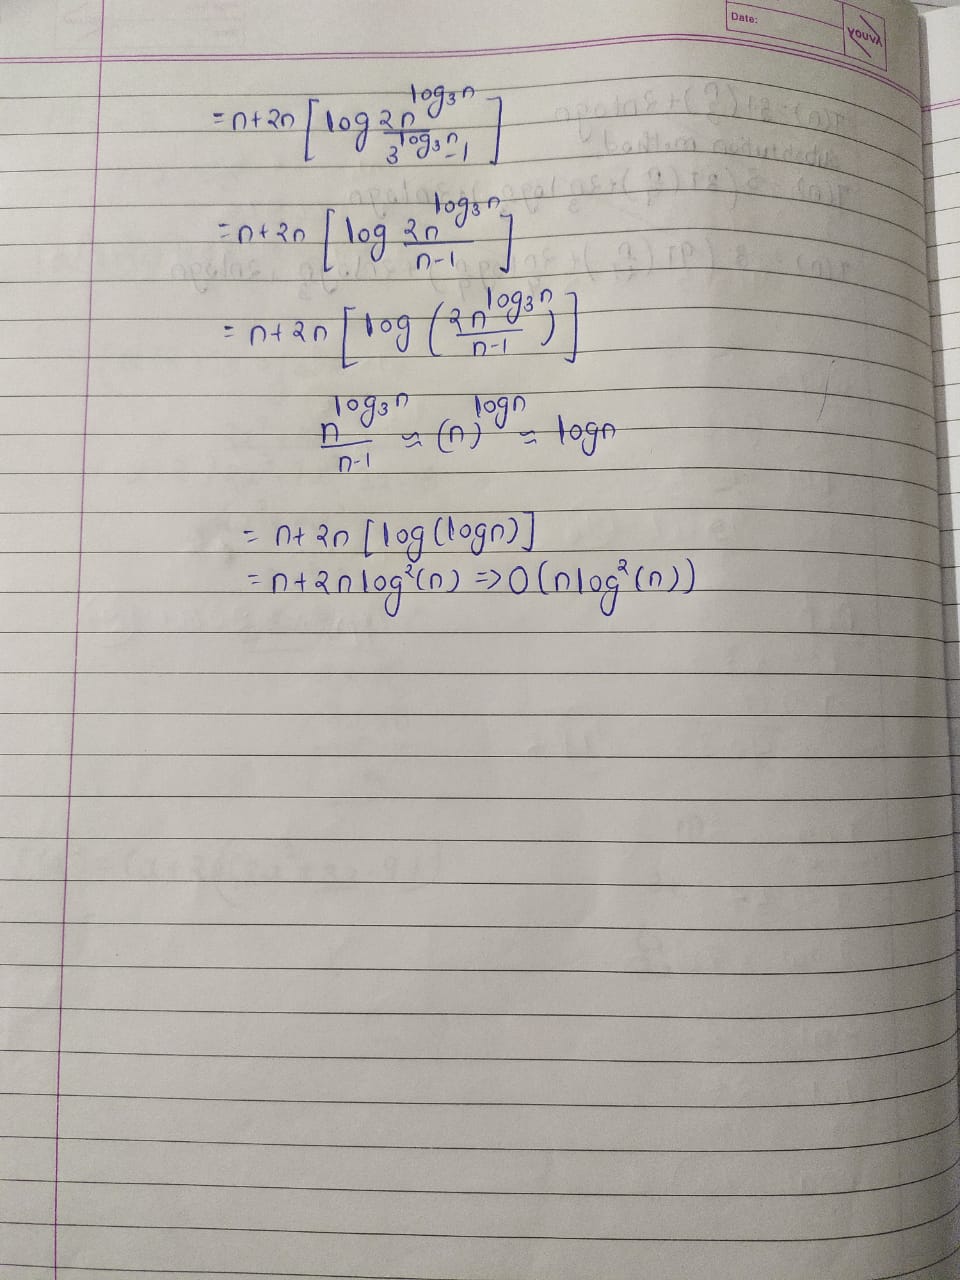 Date:
YOUVA
= n+2n [log 2n^log₃n / 3^log₃n-1]
= n+2n [log 2n^log₃n / n-1]
= n+2n [log (2n^log₃n / n-1)]
n^log₃n / n-1 ≈ (n)^logn ≈ logn
= n+2n [log(logn)]
= n+2nlog²(n) => O(nlog²(n))